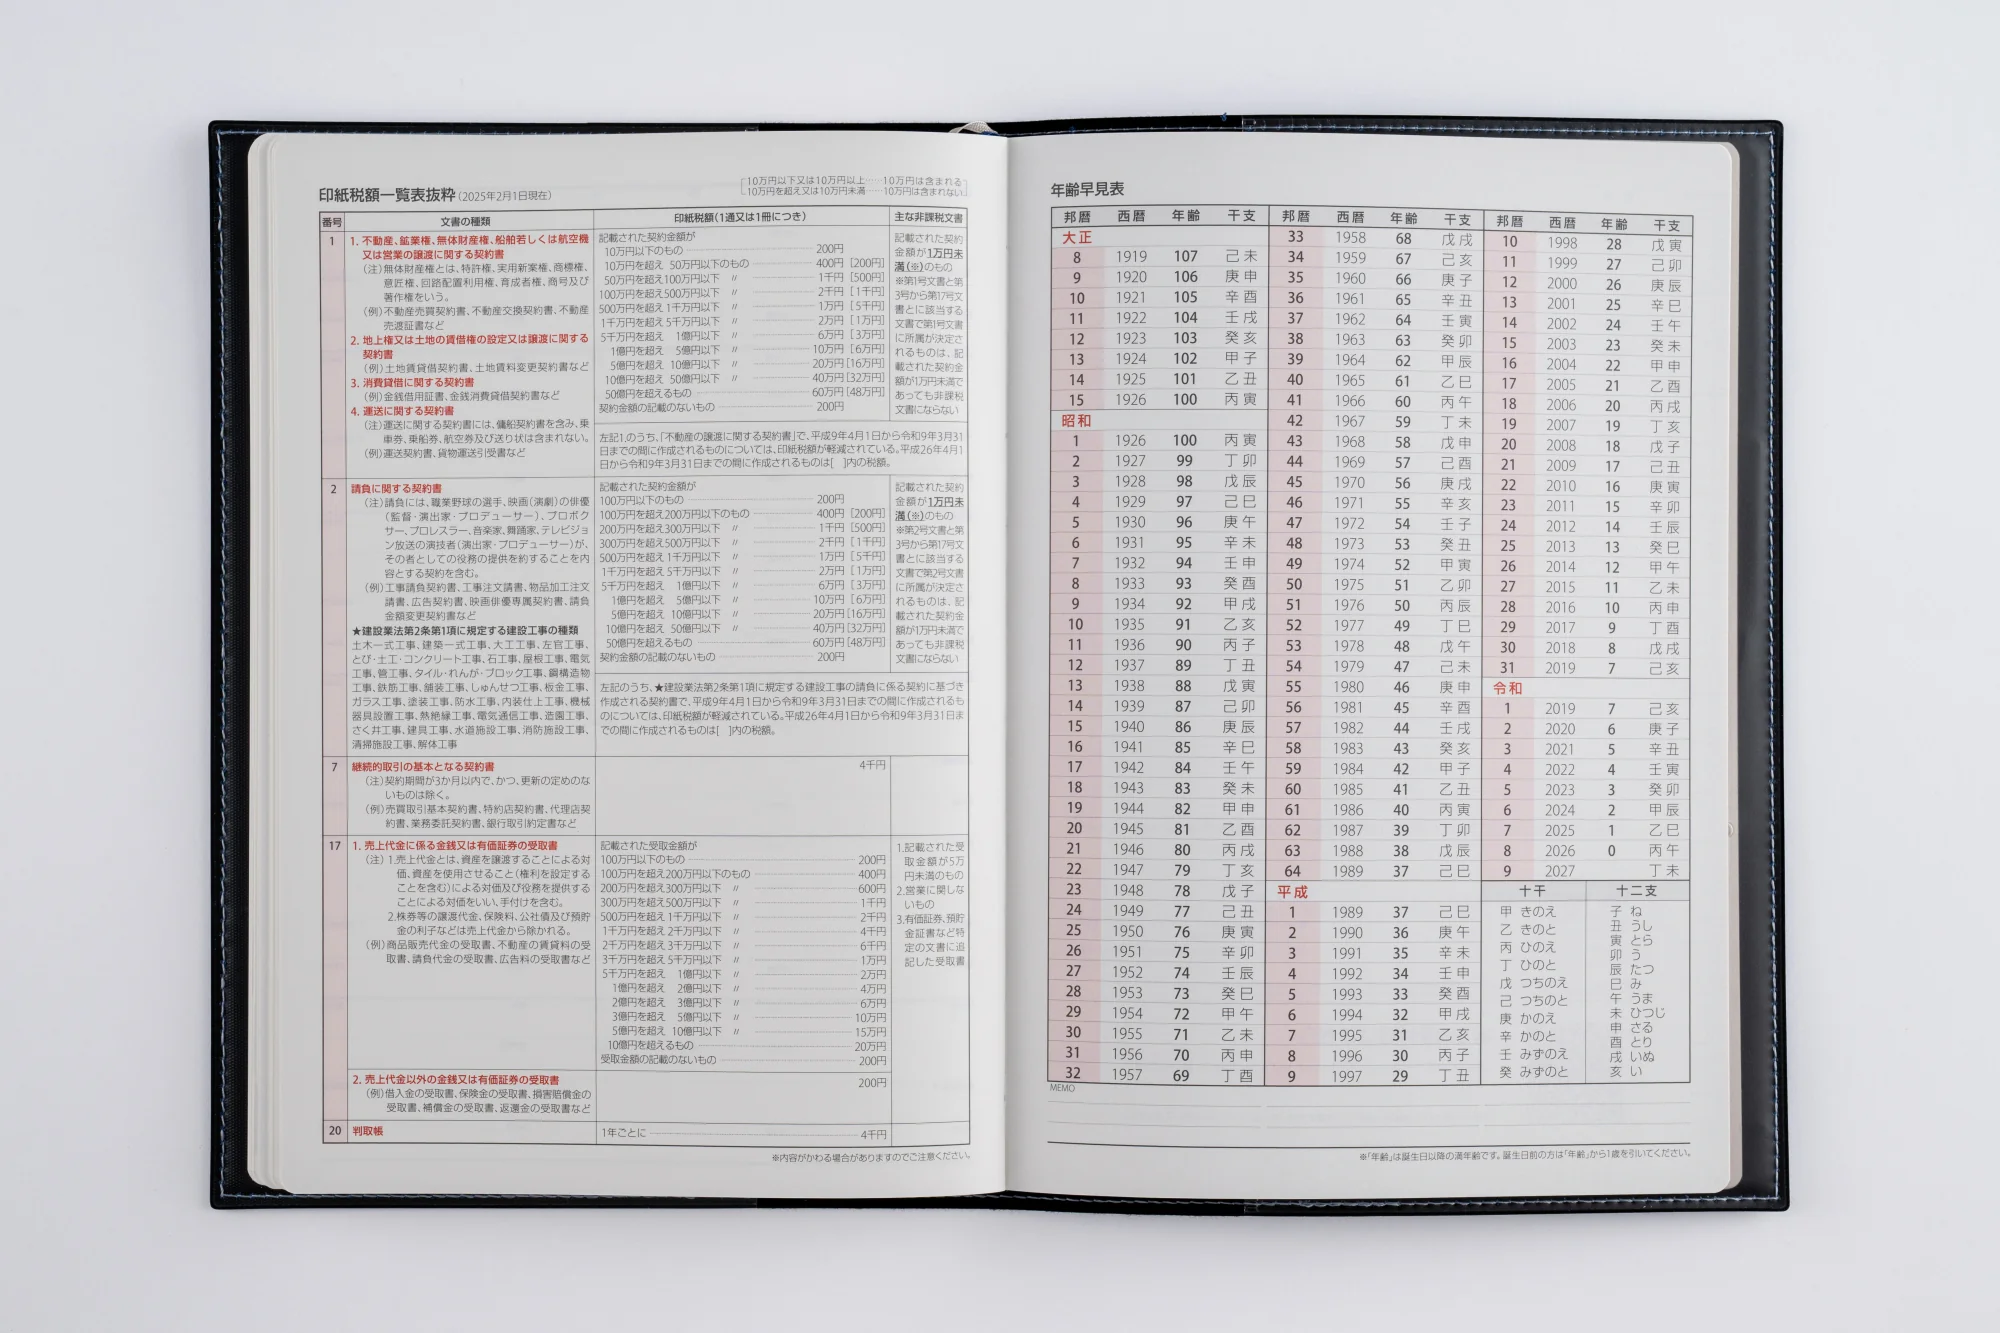 印紙税額一覧表抜粋(2025年2月1日現在)
10万円以下又は10万円以上……10万円は含まれる
10万円を超え又は10万円未満……10万円は含まれない
番号 文書の種類 印紙税額(1通又は1冊につき) 主な非課税文書
1
1. 不動産、鉱業権、無体財産権、船舶若しくは航空機
又は営業の譲渡に関する契約書
(注)無体財産権とは、特許権、実用新案権、商標権、
意匠権、回路配置利用権、育成者権、商号及び
著作権をいう。
(例)不動産売買契約書、不動産交換契約書、不動産
売渡証書など
2. 地上権又は土地の賃借権の設定又は譲渡に関する
契約書
(例)土地賃貸借契約書、土地賃料変更契約書など
3. 消費貸借に関する契約書
(例)金銭借用証書、金銭消費貸借契約書など
4. 運送に関する契約書
(注)運送に関する契約書には、傭船契約書を含み、乗
車券、乗船券、航空券及び送り状は含まれない。
(例)運送契約書、貨物運送引受書など
記載された契約金額が
10万円以下のもの 200円
10万円を超え 50万円以下のもの 400円 [200円]
50万円を超え100万円以下 〃 1千円 [500円]
100万円を超え500万円以下 〃 2千円 [1千円]
500万円を超え1千万円以下 〃 1万円 [5千円]
1千万円を超え5千万円以下 〃 2万円 [1万円]
5千万円を超え 1億円以下 〃 6万円 [3万円]
1億円を超え 5億円以下 〃 10万円 [6万円]
5億円を超え 10億円以下 〃 20万円 [16万円]
10億円を超え 50億円以下 〃 40万円 [32万円]
50億円を超えるもの 60万円 [48万円]
契約金額の記載のないもの 200円
左記1.のうち、「不動産の譲渡に関する契約書」で、平成9年4月1日から令和9年3月31
日までの間に作成されるものについては、印紙税額が軽減されている。平成26年4月1
日から令和9年3月31日までの間に作成されるものは[ ]内の税額。
記載された契約
金額が1万円未
満(※)のもの
※第1号文書と第
3号から第17号文
書とに該当する
文書で第1号文書
に所属が決定さ
れるものは、記
載された契約金
額が1万円未満で
あっても非課税
文書にならない
2
請負に関する契約書
(注)請負には、職業野球の選手、映画(演劇)の俳優
(監督・演出家・プロデューサー)、プロボク
サー、プロレスラー、音楽家、舞踊家、テレビジョ
ン放送の演技者(演出家・プロデューサー)が、
その者としての役務の提供を約することを内
容とする契約を含む。
(例)工事請負契約書、工事注文請書、物品加工注文
請書、広告契約書、映画俳優専属契約書、請負
金額変更契約書など
★建設業法第2条第1項に規定する建設工事の種類
土木一式工事、建築一式工事、大工工事、左官工事、
とび・土工・コンクリート工事、石工事、屋根工事、電気
工事、管工事、タイル・れんが・ブロック工事、鋼構造物
工事、鉄筋工事、舗装工事、しゅんせつ工事、板金工事、
ガラス工事、塗装工事、防水工事、内装仕上工事、機械
器具設置工事、熱絶縁工事、電気通信工事、造園工事、
さく井工事、建具工事、水道施設工事、消防施設工事、
清掃施設工事、解体工事
記載された契約金額が
100万円以下のもの 200円
100万円を超え200万円以下のもの 400円 [200円]
200万円を超え300万円以下 〃 1千円 [500円]
300万円を超え500万円以下 〃 2千円 [1千円]
500万円を超え1千万円以下 〃 1万円 [5千円]
1千万円を超え5千万円以下 〃 2万円 [1万円]
5千万円を超え 1億円以下 〃 6万円 [3万円]
1億円を超え 5億円以下 〃 10万円 [6万円]
5億円を超え 10億円以下 〃 20万円 [16万円]
10億円を超え 50億円以下 〃 40万円 [32万円]
50億円を超えるもの 60万円 [48万円]
契約金額の記載のないもの 200円
左記のうち、★建設業法第2条第1項に規定する建設工事の請負に係る契約に基づき
作成される契約書で、平成9年4月1日から令和9年3月31日までの間に作成されるも
のについては、印紙税額が軽減されている。平成26年4月1日から令和9年3月31日ま
での間に作成されるものは[ ]内の税額。
記載された契約
金額が1万円未
満(※)のもの
※第2号文書と第
3号から第17号文
書とに該当する
文書で第2号文書
に所属が決定さ
れるものは、記
載された契約金
額が1万円未満で
あっても非課税
文書にならない
7
継続的取引の基本となる契約書
(注)契約期間が3か月以内で、かつ、更新の定めのな
いものは除く。
(例)売買取引基本契約書、特約店契約書、代理店契
約書、業務委託契約書、銀行取引約定書など
4千円
17
1. 売上代金に係る金銭又は有価証券の受取書
(注) 1.売上代金とは、資産を譲渡することによる対
価、資産を使用させること(権利を設定する
ことを含む)による対価及び役務を提供する
ことによる対価をいい、手付けを含む。
2.株券等の譲渡代金、保険料、公社債及び預貯
金の利子などは売上代金から除かれる。
(例)商品販売代金の受取書、不動産の賃貸料の受
取書、請負代金の受取書、広告料の受取書など
記載された受取金額が
100万円以下のもの 200円
100万円を超え200万円以下のもの 400円
200万円を超え300万円以下 〃 600円
300万円を超え500万円以下 〃 1千円
500万円を超え1千万円以下 〃 2千円
1千万円を超え2千万円以下 〃 4千円
2千万円を超え3千万円以下 〃 6千円
3千万円を超え5千万円以下 〃 1万円
5千万円を超え 1億円以下 〃 2万円
1億円を超え 2億円以下 〃 4万円
2億円を超え 3億円以下 〃 6万円
3億円を超え 5億円以下 〃 10万円
5億円を超え 10億円以下 〃 15万円
10億円を超えるもの 20万円
受取金額の記載のないもの 200円
1.記載された受
取金額が5万
円未満のもの
2.営業に関しな
いもの
3.有価証券、預貯
金証書など特
定の文書に追
記した受取書
2. 売上代金以外の金銭又は有価証券の受取書
(例)借入金の受取書、保険金の受取書、損害賠償金の
受取書、補償金の受取書、返還金の受取書など
200円
20 判取帳 1年ごとに 4千円
※内容がかわる場合がありますのでご注意ください。
年齢早見表
邦暦 西暦 年齢 干支
大正
8 1919 107 己未
9 1920 106 庚申
10 1921 105 辛酉
11 1922 104 壬戌
12 1923 103 癸亥
13 1924 102 甲子
14 1925 101 乙丑
15 1926 100 丙寅
昭和
1 1926 100 丙寅
2 1927 99 丁卯
3 1928 98 戊辰
4 1929 97 己巳
5 1930 96 庚午
6 1931 95 辛未
7 1932 94 壬申
8 1933 93 癸酉
9 1934 92 甲戌
10 1935 91 乙亥
11 1936 90 丙子
12 1937 89 丁丑
13 1938 88 戊寅
14 1939 87 己卯
15 1940 86 庚辰
16 1941 85 辛巳
17 1942 84 壬午
18 1943 83 癸未
19 1944 82 甲申
20 1945 81 乙酉
21 1946 80 丙戌
22 1947 79 丁亥
23 1948 78 戊子
24 1949 77 己丑
25 1950 76 庚寅
26 1951 75 辛卯
27 1952 74 壬辰
28 1953 73 癸巳
29 1954 72 甲午
30 1955 71 乙未
31 1956 70 丙申
32 1957 69 丁酉
邦暦 西暦 年齢 干支
33 1958 68 戊戌
34 1959 67 己亥
35 1960 66 庚子
36 1961 65 辛丑
37 1962 64 壬寅
38 1963 63 癸卯
39 1964 62 甲辰
40 1965 61 乙巳
41 1966 60 丙午
42 1967 59 丁未
43 1968 58 戊申
44 1969 57 己酉
45 1970 56 庚戌
46 1971 55 辛亥
47 1972 54 壬子
48 1973 53 癸丑
49 1974 52 甲寅
50 1975 51 乙卯
51 1976 50 丙辰
52 1977 49 丁巳
53 1978 48 戊午
54 1979 47 己未
55 1980 46 庚申
56 1981 45 辛酉
57 1982 44 壬戌
58 1983 43 癸亥
59 1984 42 甲子
60 1985 41 乙丑
61 1986 40 丙寅
62 1987 39 丁卯
63 1988 38 戊辰
64 1989 37 己巳
平成
1 1989 37 己巳
2 1990 36 庚午
3 1991 35 辛未
4 1992 34 壬申
5 1993 33 癸酉
6 1994 32 甲戌
7 1995 31 乙亥
8 1996 30 丙子
9 1997 29 丁丑
邦暦 西暦 年齢 干支
10 1998 28 戊寅
11 1999 27 己卯
12 2000 26 庚辰
13 2001 25 辛巳
14 2002 24 壬午
15 2003 23 癸未
16 2004 22 甲申
17 2005 21 乙酉
18 2006 20 丙戌
19 2007 19 丁亥
20 2008 18 戊子
21 2009 17 己丑
22 2010 16 庚寅
23 2011 15 辛卯
24 2012 14 壬辰
25 2013 13 癸巳
26 2014 12 甲午
27 2015 11 乙未
28 2016 10 丙申
29 2017 9 丁酉
30 2018 8 戊戌
31 2019 7 己亥
令和
1 2019 7 己亥
2 2020 6 庚子
3 2021 5 辛丑
4 2022 4 壬寅
5 2023 3 癸卯
6 2024 2 甲辰
7 2025 1 乙巳
8 2026 0 丙午
9 2027 丁未
十干
甲 きのえ
乙 きのと
丙 ひのえ
丁 ひのと
戊 つちのえ
己 つちのと
庚 かのえ
辛 かのと
壬 みずのえ
癸 みずのと
十二支
子 ね
丑 うし
寅 とら
卯 う
辰 たつ
巳 み
午 うま
未 ひつじ
申 さる
酉 とり
戌 いぬ
亥 い
MEMO
※「年齢」は誕生日以降の満年齢です。誕生日前の方は「年齢」から1歳を引いてください。